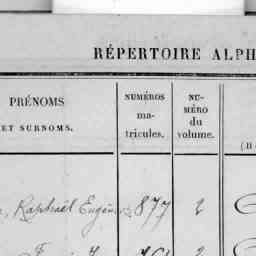 RÉPERTOIRE ALPH
PRÉNOMS
ET SURNOMS.
NUMÉROS
ma-
tricules.
NU-
MÉRO
du
volume.
Raphaël Eugène 877 2